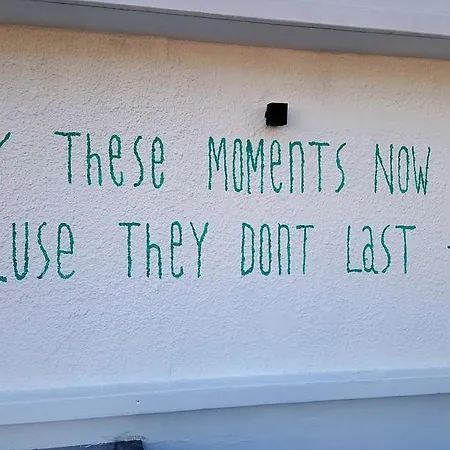 THese MOMeNTs NOW
THeY DONT LasT